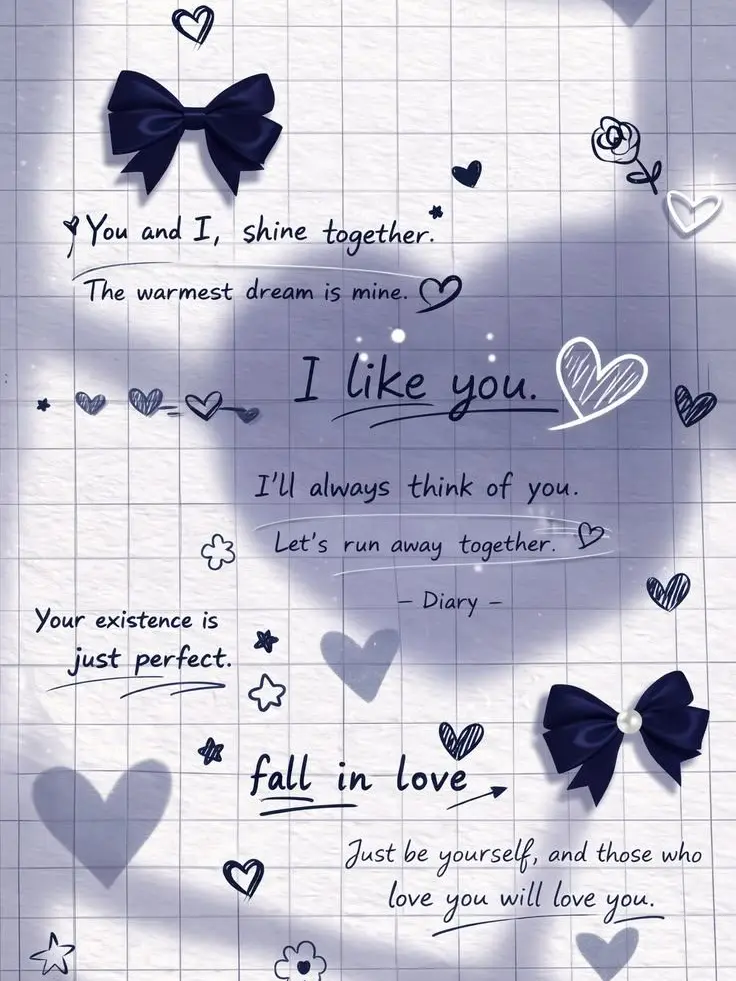 You and I, shine together.
The warmest dream is mine.
I like you.
I'll always think of you.
Let's run away together.
– Diary –
Your existence is
just perfect.
fall in love
Just be yourself, and those who
love you will love you.